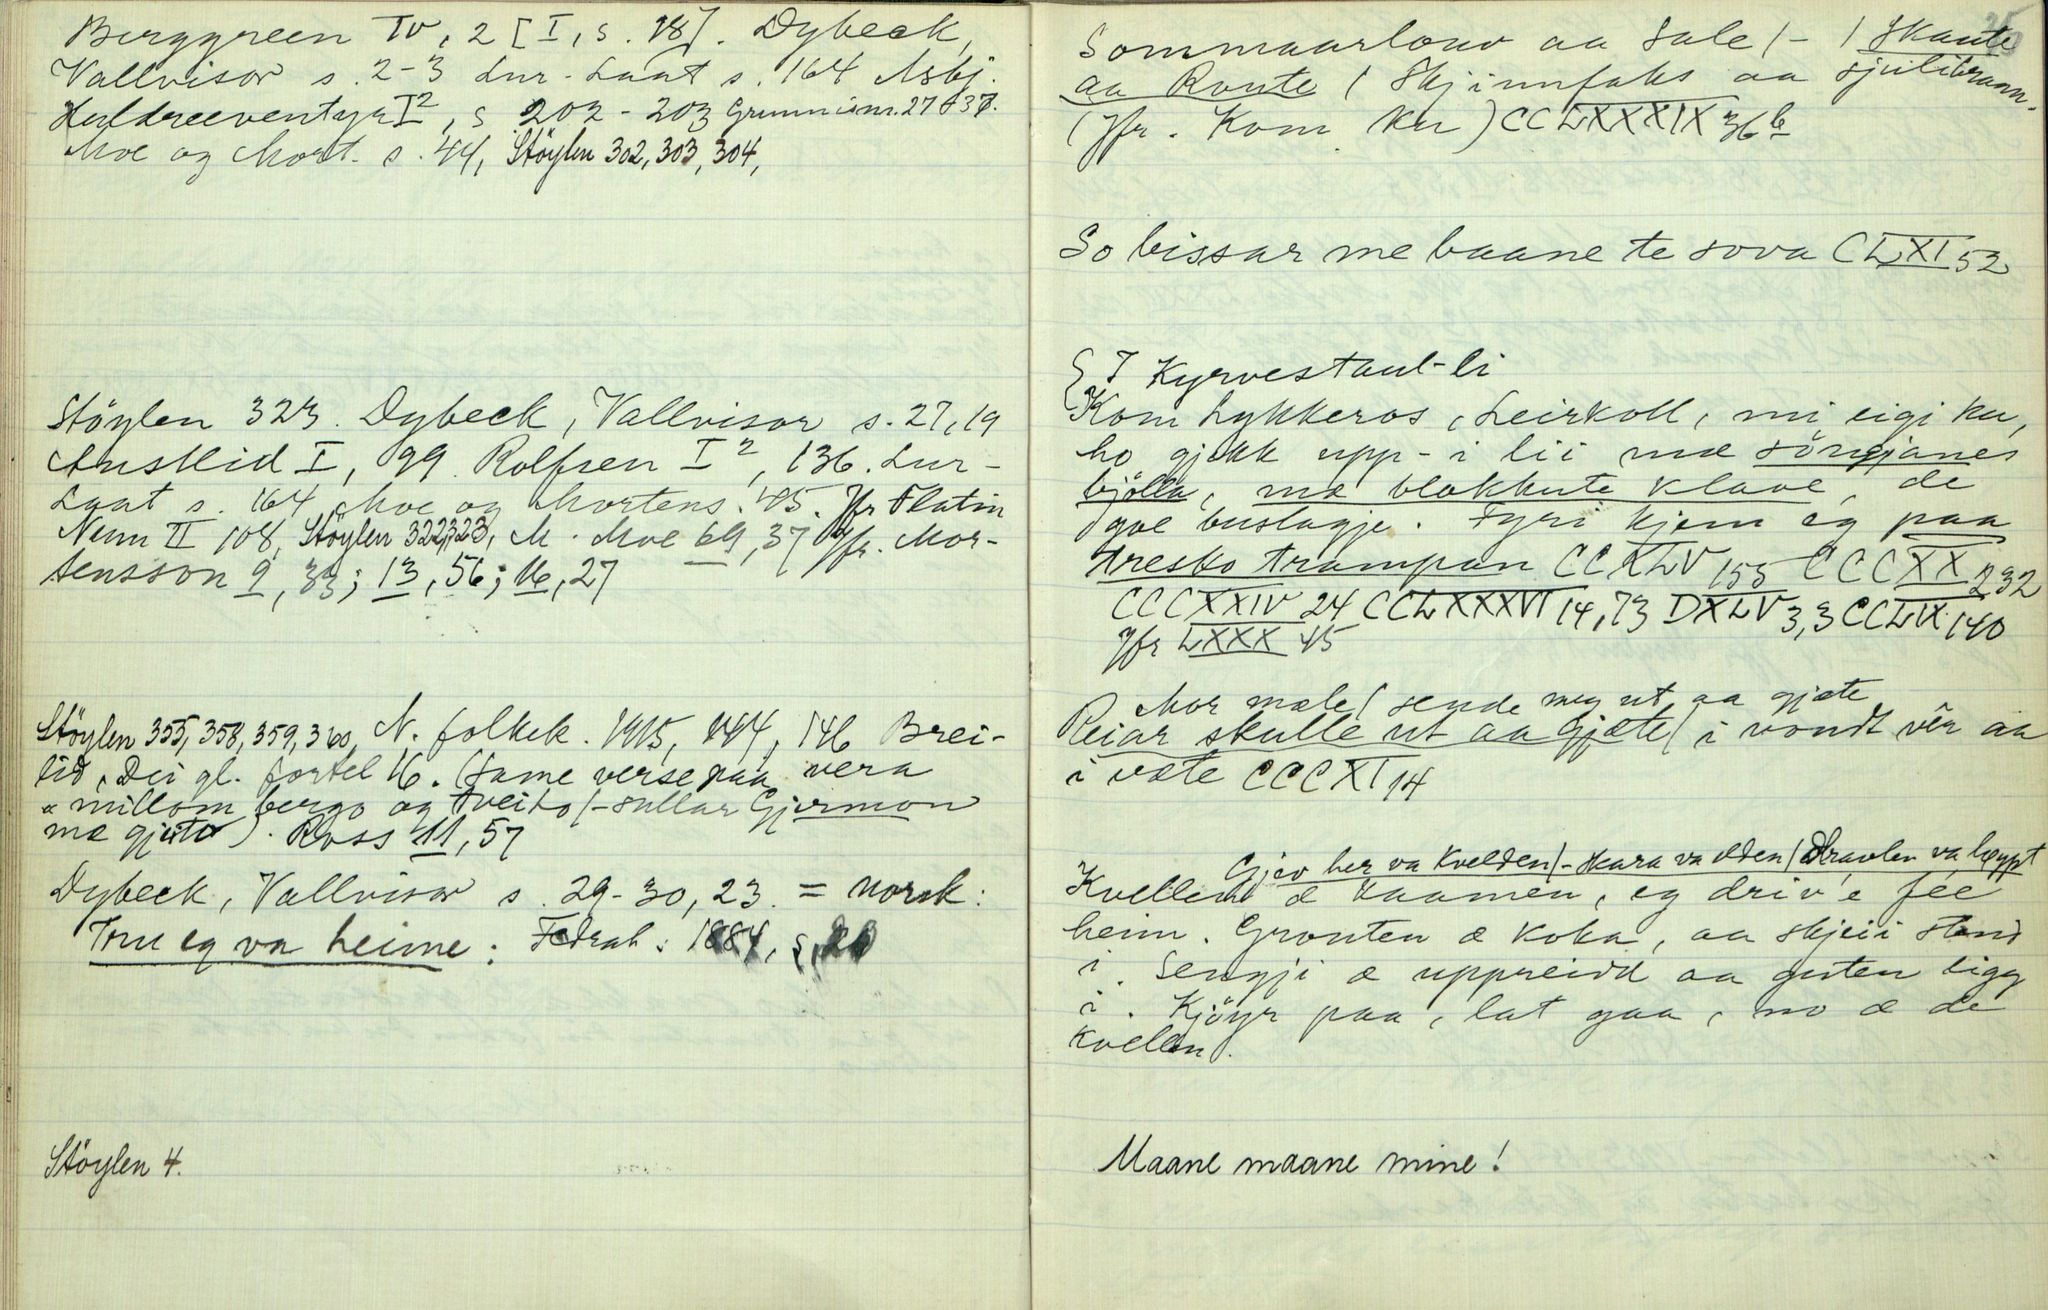 Berggreen IV, 2 [I, s. 18]. Dybeck,
Vallvisor s. 2-3 Lur-Laat s. 164 Asbj.
Huldreeventyr I², s 202 - 203 Grunnismr. 27 + 37.
Moe og Mort. s. 44, Stöylen 302, 303, 304,
Stöylen 323. Dybeck, Vallvisor s. 27, 19
Austlid I, 99. Rolfsen I², 136. Lur-
Laat s. 164 Moe og Mortens. 45. Jfr Flatin
Nemn II 108, Stöylen 322, 323, M. Moe 69, 37 Jfr. Mor-
tensson 9, 33; 13, 56; 16, 27
Stöylen 355, 358, 359, 360, N. folkek. 1915, 144, 146 Brei-
lid, Dei gl. fortel 16. (same verse paa vera
millom bergo og tveito/- sullar Gjermon
mæ gjeito). Ross 11, 57
Dybeck, Vallvisor s. 29-30, 23. = norsk:
Tru eg va heime: Fedrah. 1884, s. 20
Stöylen 4.
Sommaarlauv aa Sale /- / Skaute
aa Raute / Skjinnfaks aa sjulibrann-
(Jfr. Kom ku) CCLXXXIX 36 b
So bissar me baane te sova CLXI 52
I Kyrvestaul-li
Kom Lykkeros, Leirkoll, mi eigi ku,
ho gjekk upp-i lii mæ söngjanes
bjölla, mæ blakkute klave, de
gve buslagje. Fyri kjem eg paa
tresko trampan CCXLV 155 CCCXX 232
CCCXXIV 24 CCLXXXVI 14, 73 DXLV 3, 3 CCLIX 140
Jfr LXXX 45
Mor mæle / sende meg ut aa gjæte
Reiar skulle ut aa gjæte / i vondt vêr aa
i væte CCCXI 14
Gjev her va Kvelden /- skara va elden / Dravlen va løypt
Kvellen æ kaamen, eg driv'e fée
heim. Grauten æ koka, aa skjeii stend
i. Sengji æ uppreidd aa guten ligg
i. Kjöyr paa, lat gaa, no æ de
kvellen.
Maane maane mine!